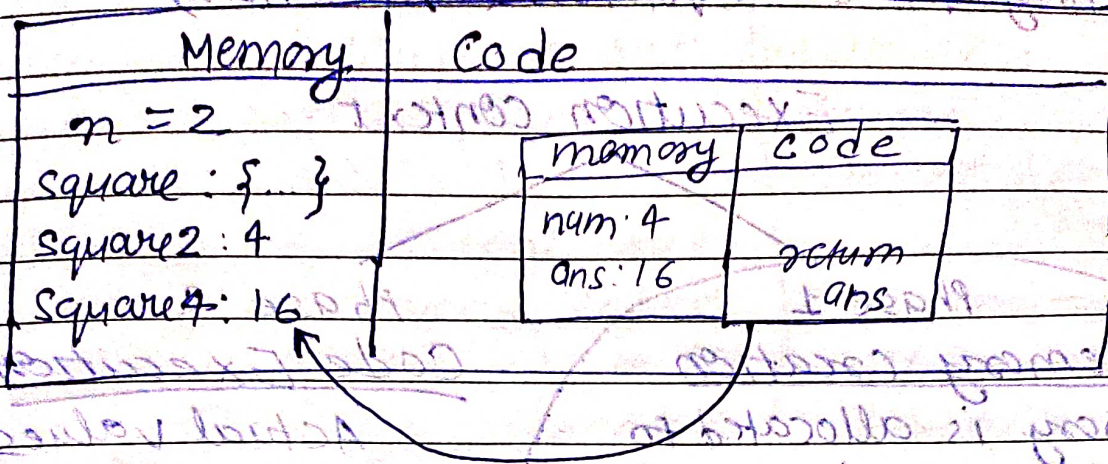 Memory
Code
n = 2
square : {...}
square2 : 4
square4 : 16
memory
code
num: 4
ans: 16
return
ans